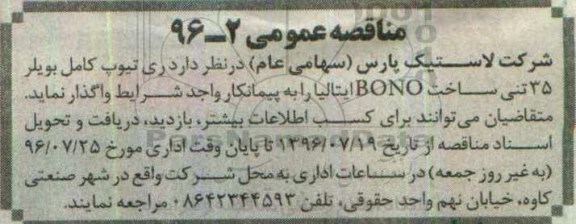 مناقصه عمومی ۲ـ۹۶
شرکت لاستیک پارس (سهامی عام) در نظر دارد ری تیوپ کامل بویلر
۳۵ تنی ساخت BONO ایتالیا را به پیمانکار واجد شرایط واگذار نماید.
متقاضیان می‌توانند برای کسب اطلاعات بیشتر، بازدید، دریافت و تحویل
اسناد مناقصه از تاریخ ۱۳۹۶/۰۷/۱۹ تا پایان وقت اداری مورخ ۹۶/۰۷/۲۵
(به غیر روز جمعه) در ساعات اداری به محل شرکت واقع در شهر صنعتی
کاوه، خیابان نهم واحد حقوقی، تلفن ۰۸۶۴۲۳۴۴۵۹۳ مراجعه نمایند.